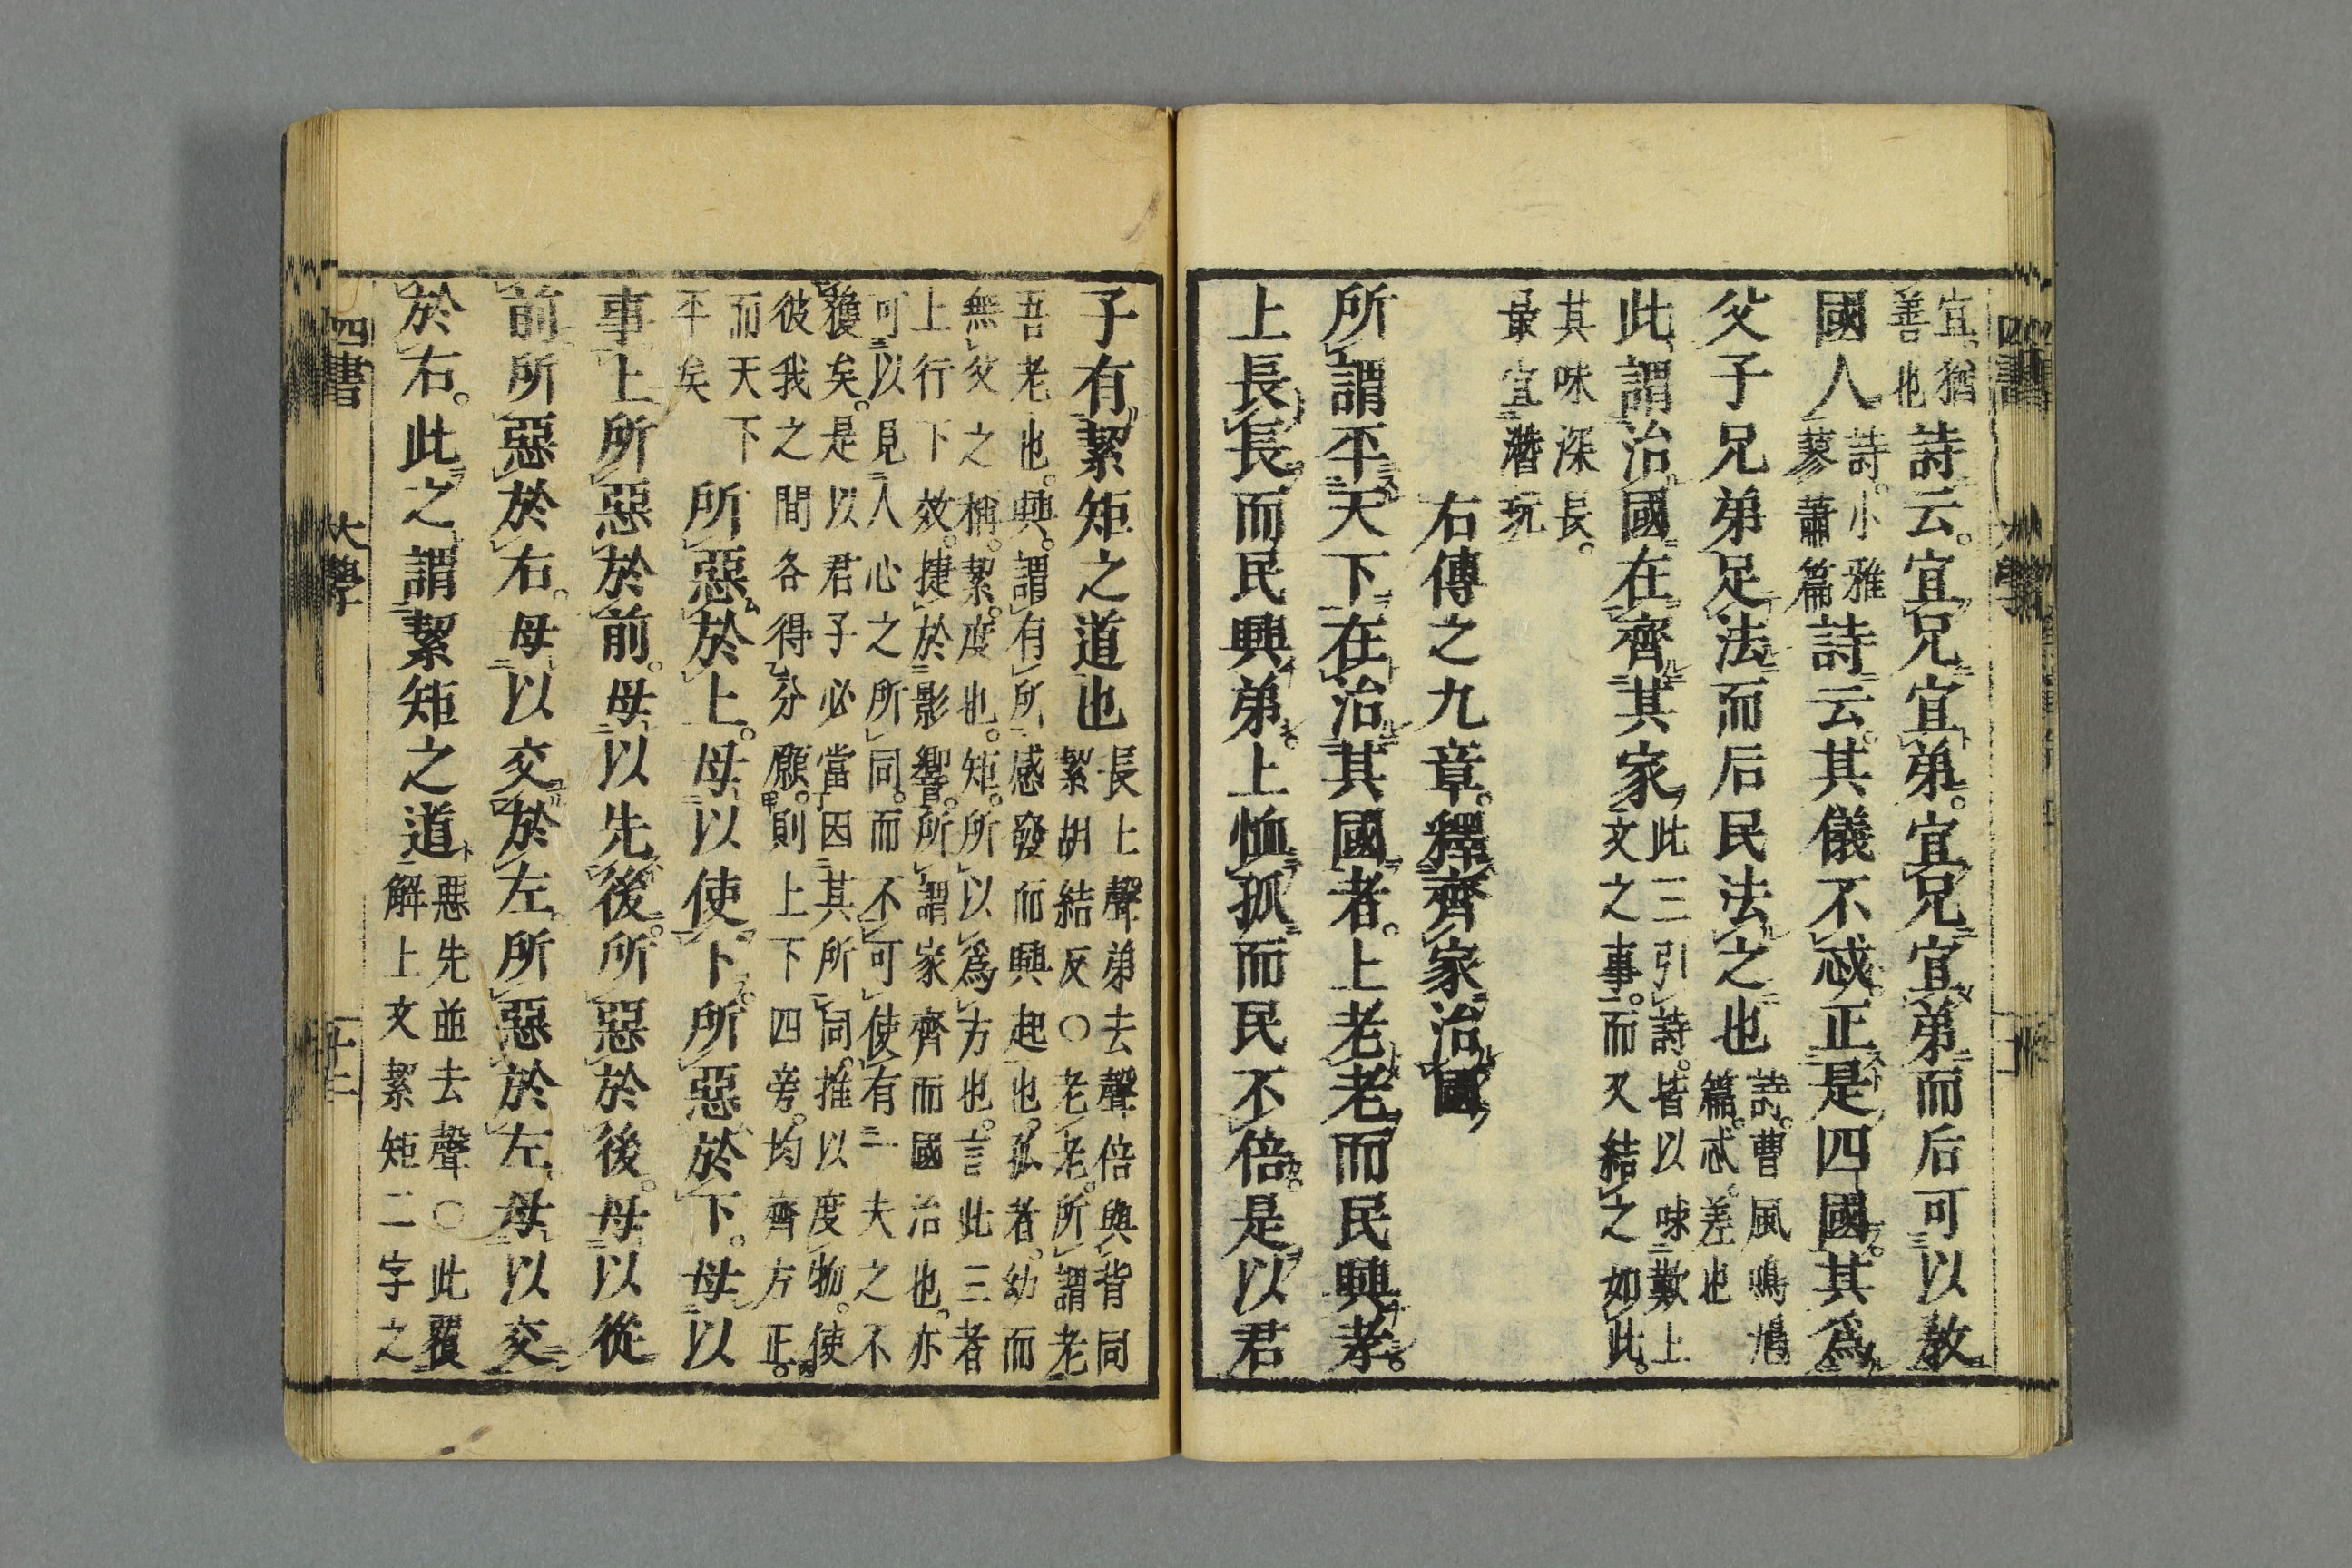 宜猶
善也
詩云。宜兄宜弟。宜兄宜弟而后可以敎
國人
詩。小雅
蓼蕭篇
詩云。其儀不忒。正是四國。其爲
父子兄弟足法而后民法之也
詩。曹風鳴鳩
篇。忒。差也
此謂治國在齊其家
此三引詩。皆以咏歎上
文之事。而又結之如此。
其味深長。
最宜潛玩
右傳之九章。釋齊家治國
所謂平天下在治其國者。上老老而民興孝。
上長長而民興弟。上恤孤而民不倍。是以君
子有絜矩之道也
長上聲弟去聲倍與背同
絜胡結反○老老。所謂老
吾老也。興。謂有所感發而興起也。孤者。幼而
無父之稱。絜。度也。矩。所以爲方也。言此三者
上行下效。捷於影響。所謂家齊而國治也。亦
可以見人心之所同。而不可使有一夫之不
獲矣。是以君子必當因其所同。推以度物。使
彼我之間各得分願。則上下四旁。均齊方正。
而天下
平矣
所惡於上。毋以使下。所惡於下。毋以
事上所惡於前。毋以先後。所惡於後。毋以從
前所惡於右。毋以交於左。所惡於左。毋以交
於右。此之謂絜矩之道
惡先並去聲○此覆
解上文絜矩二字之
四書
大學
十二